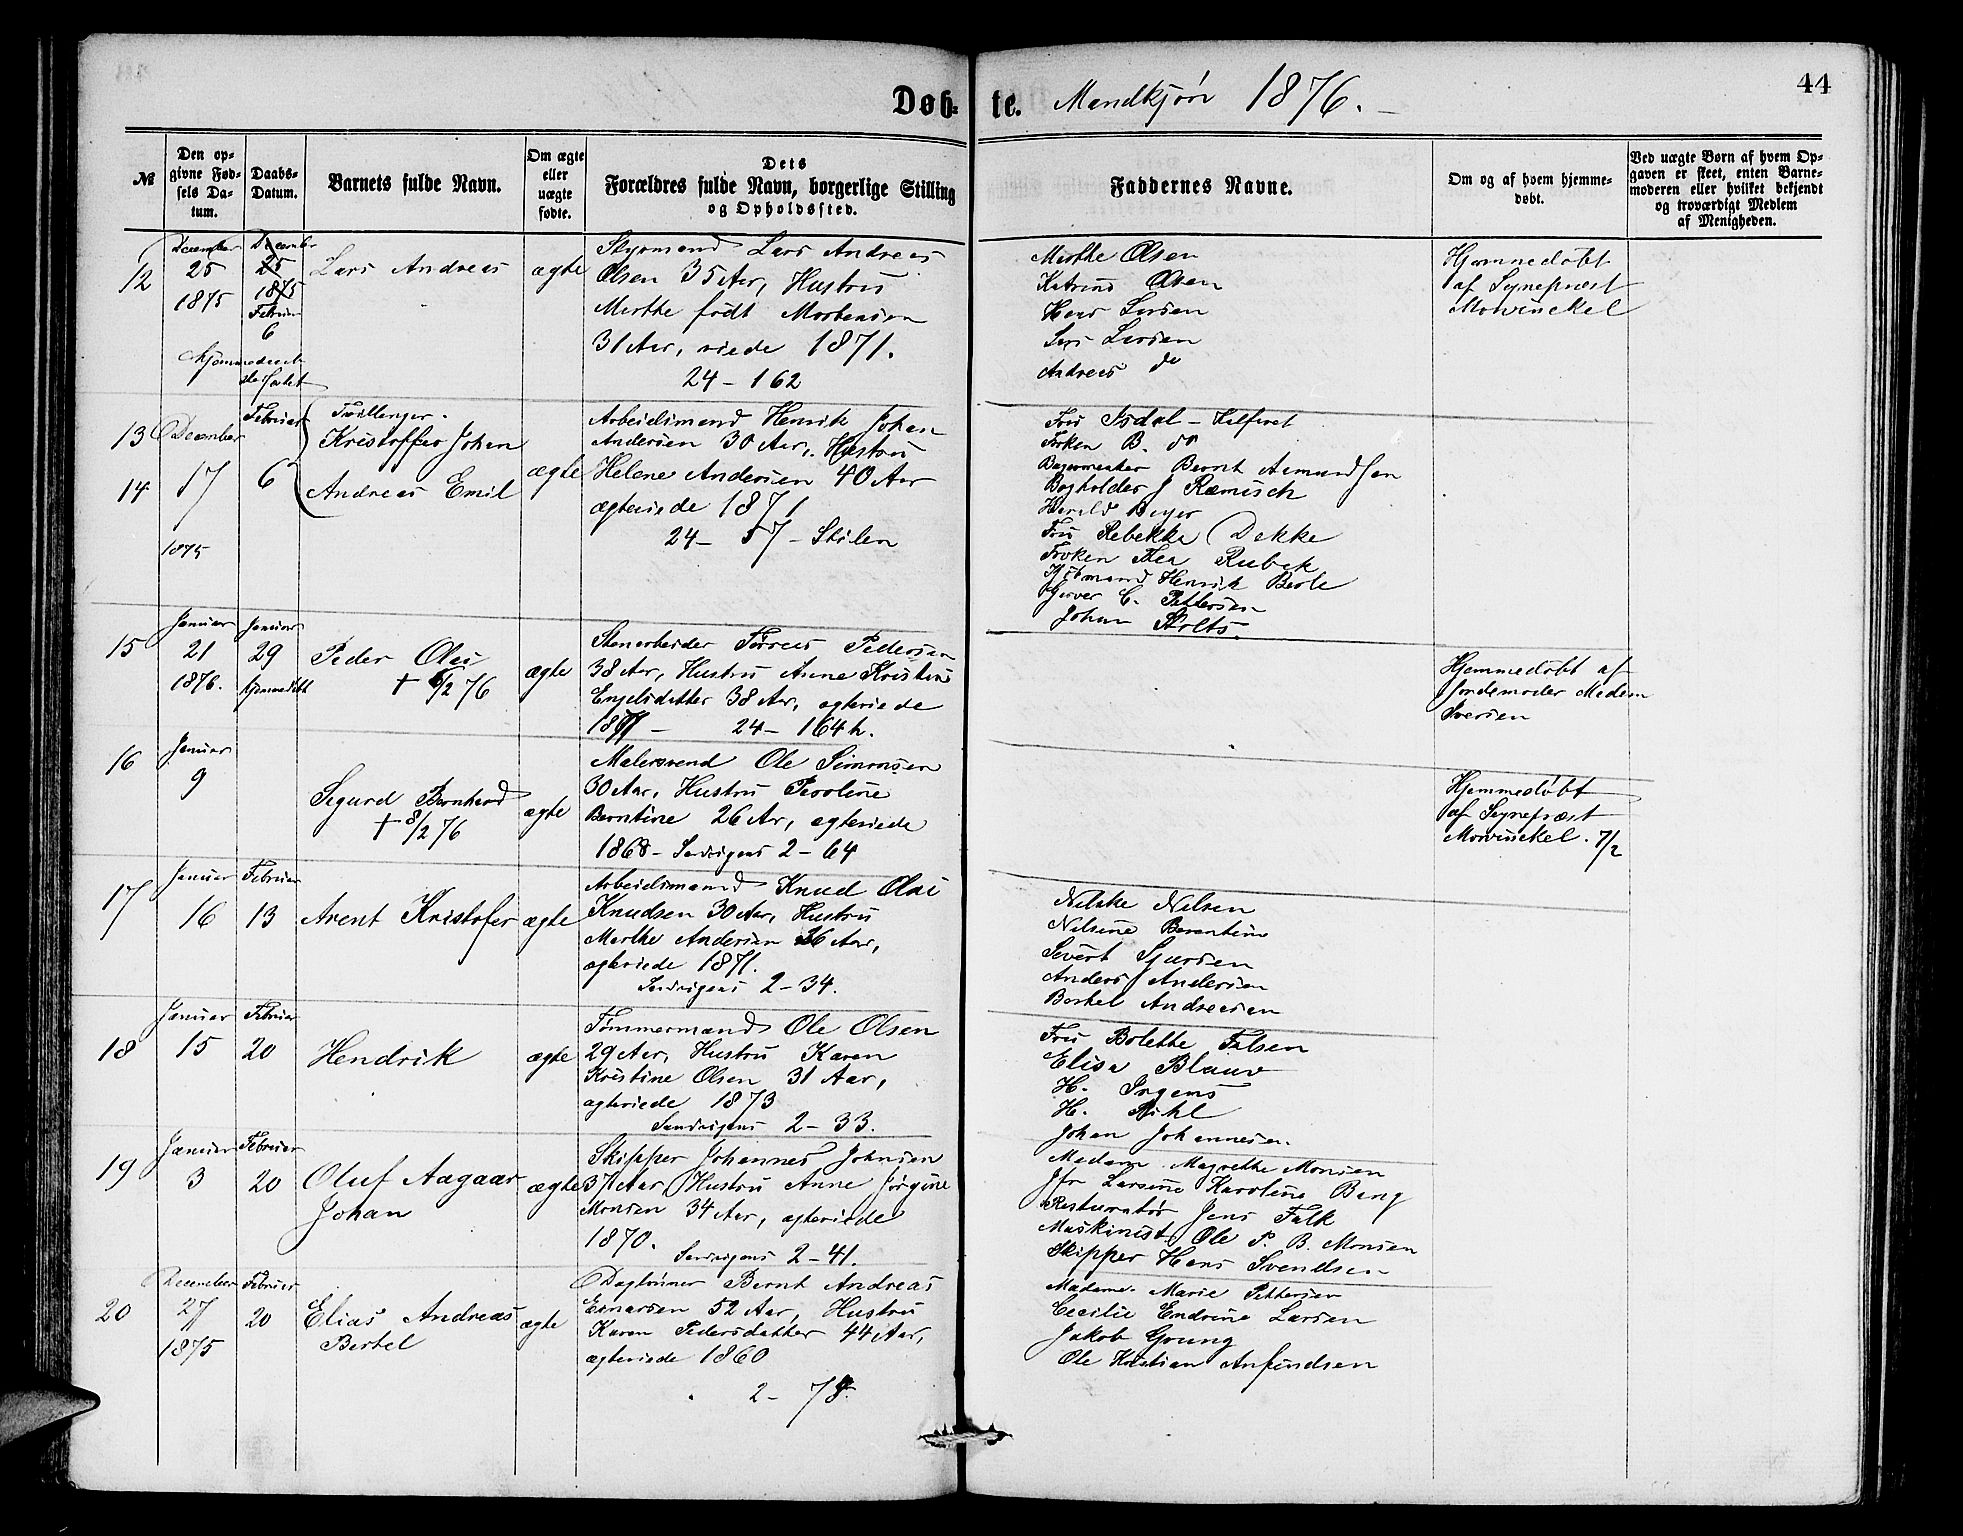 44
Døb- te. Mandkjøn 1876.
№
Den op-
givne Fød-
sels Da-
tum.
Daabs-
Datum.
Barnets fulde Navn.
Om ægte
eller
uægte
fødte.
Dets
Forældres fulde Navn, borgerlige Stilling
og Opholdssted.
Faddernes Navne.
Om og af hvem hjemme-
døbt.
Ved uægte Børn af hvem Op-
gaven er skeet, enten Barne-
moderen eller hvilket bekjendt
og troværdigt Medlem
af Menigheden.
12
December
25
1875
December
25
1875
Februar
6
Hjemmedaab
stadfæstet
Lars Andreas
ægte
Styrmand Lars Andreas
Olsen 35 Aar, Hustru
Marthe født Mortensen
31 Aar, viede 1871.
24 - 162
Marthe Olsen
Katrine Olsen
Hans Larsen
Lars Larsen
Andreas do
Hjemmedøbt
af Sognepræst
Mowinckel
13
14
December
17
1875
Februar
6
Tvillinger.
Kristoffer Johan
Andreas Emil
ægte
Arbeidsmand Henrik Johan
Andersen 30 Aar, Hustru
Helene Andersen 40 Aar
ægteviede 1871
24 - 57 - Stølen
Fru Isdal - Kalfaret
Frøken B. do
Bagermester Bernt Asmundsen
Bogholder J Ræmisch
Harald Beyer
Fru Rebekka Dekke
Frøken Thea Rubek
Kjøbmand Henrik Berle
Garver C. Pettersen
Johan Stolts.
15
Januar
21
1876.
Januar
29
hjemmedøbt
Peder Olai
+ 6/2 76
ægte
Stenarbeider Tørres Pedersen
38 Aar, Hustru Anne Kristine
Engelsdatter 38 Aar, ægteviede
1871 - 24 - 164 h.
Hjemmedøbt af
Jordemoder Madam
Iversen
16
Januar
9
Sigurd Bernhard
+ 8/2 76
ægte
Malersvend Ole Simonsen
30 Aar, Hustru Peroline
Berntine 26 Aar, ægteviede
1868 - Sandvigens 2 - 64
Hjemmedøbt
af Sognepræst
Mowinckel. 7/2
17
Januar
16
Februar
13
Arent Kristofer
ægte
Arbeidsmand Knud Olai
Knudsen 30 Aar, Hustru
Marthe Andersen 36 Aar,
ægteviede 1871.
Sandvigens 2 - 34.
Nilske Nilsen
Nilsine Berentine
Severt Sjursen
Anders Andersen
Bertel Andreasen
18
Januar
15
Februar
20
Hendrik
ægte
Tømmermand Ole Olsen
29 Aar, Hustru Karen
Kristine Olsen 31 Aar,
ægteviede 1873
Sandvigens 2 - 33.
Fru Bolette Falsen
Elisa Blauw
H. Irgens
H. Pihl
Johan Johannesen.
19
Januar
3
Februar
20
Oluf Aagaar
Johan
ægte
Skipper Johannes Johnsen
37 Aar, Hustru Anne Jørgine
Monsen 34 Aar, ægteviede
1870.
Sandvigens 2 - 41.
Madam Magrethe Monsen
Jfr Larsine Karoline Bang
Resturatør Jens Falk
Maskinist Ole P. B. Monsen
Skipper Hans Svendsen
20
December
27
1875
Februar
20
Elias Andreas
Bertel
ægte
Daglønner Bernt Andreas
Einarsen 52 Aar, Hustru
Karen Pedersdatter 44 Aar,
ægteviede 1860
2 -
Madame Marie Pettersen
Cecilie Endrine Larsen
Jakob Grung
Ole Kristian Anfindsen